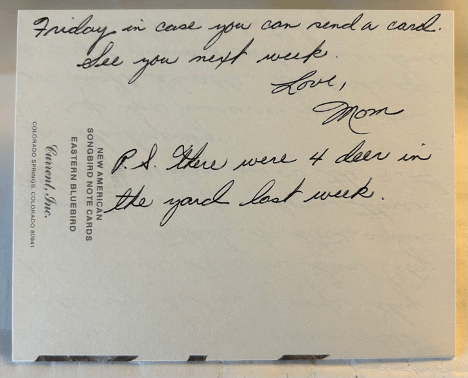 Friday in case you can send a card.
See you next week.
Love,
Mom
P.S. There were 4 deer in
the yard last week.
NEW AMERICAN
SONGBIRD NOTE CARDS
EASTERN BLUEBIRD
Current, Inc.
COLORADO SPRINGS, COLORADO 80941